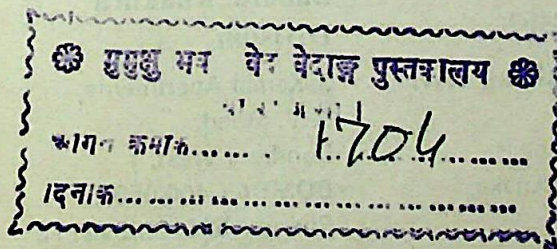 मुमुक्षु भव वेद वेदाङ्ग पुस्तकालय
आगत क्रमांक...... 1704
दिनांक......